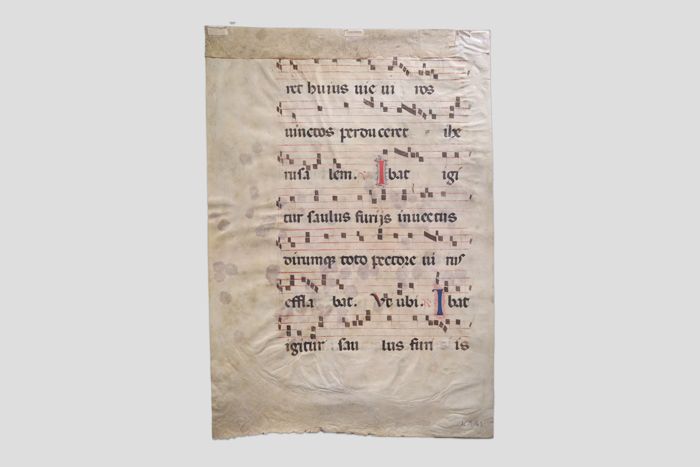 ret huius uie ui ros
uinctos perduceret ihe
rusa lem. Ibat igi
tur saulus furijs inuectus
dirumqꝫ toto pectore ui rus
effla bat. Vt ubi. Ibat
igitur sau lus furi is